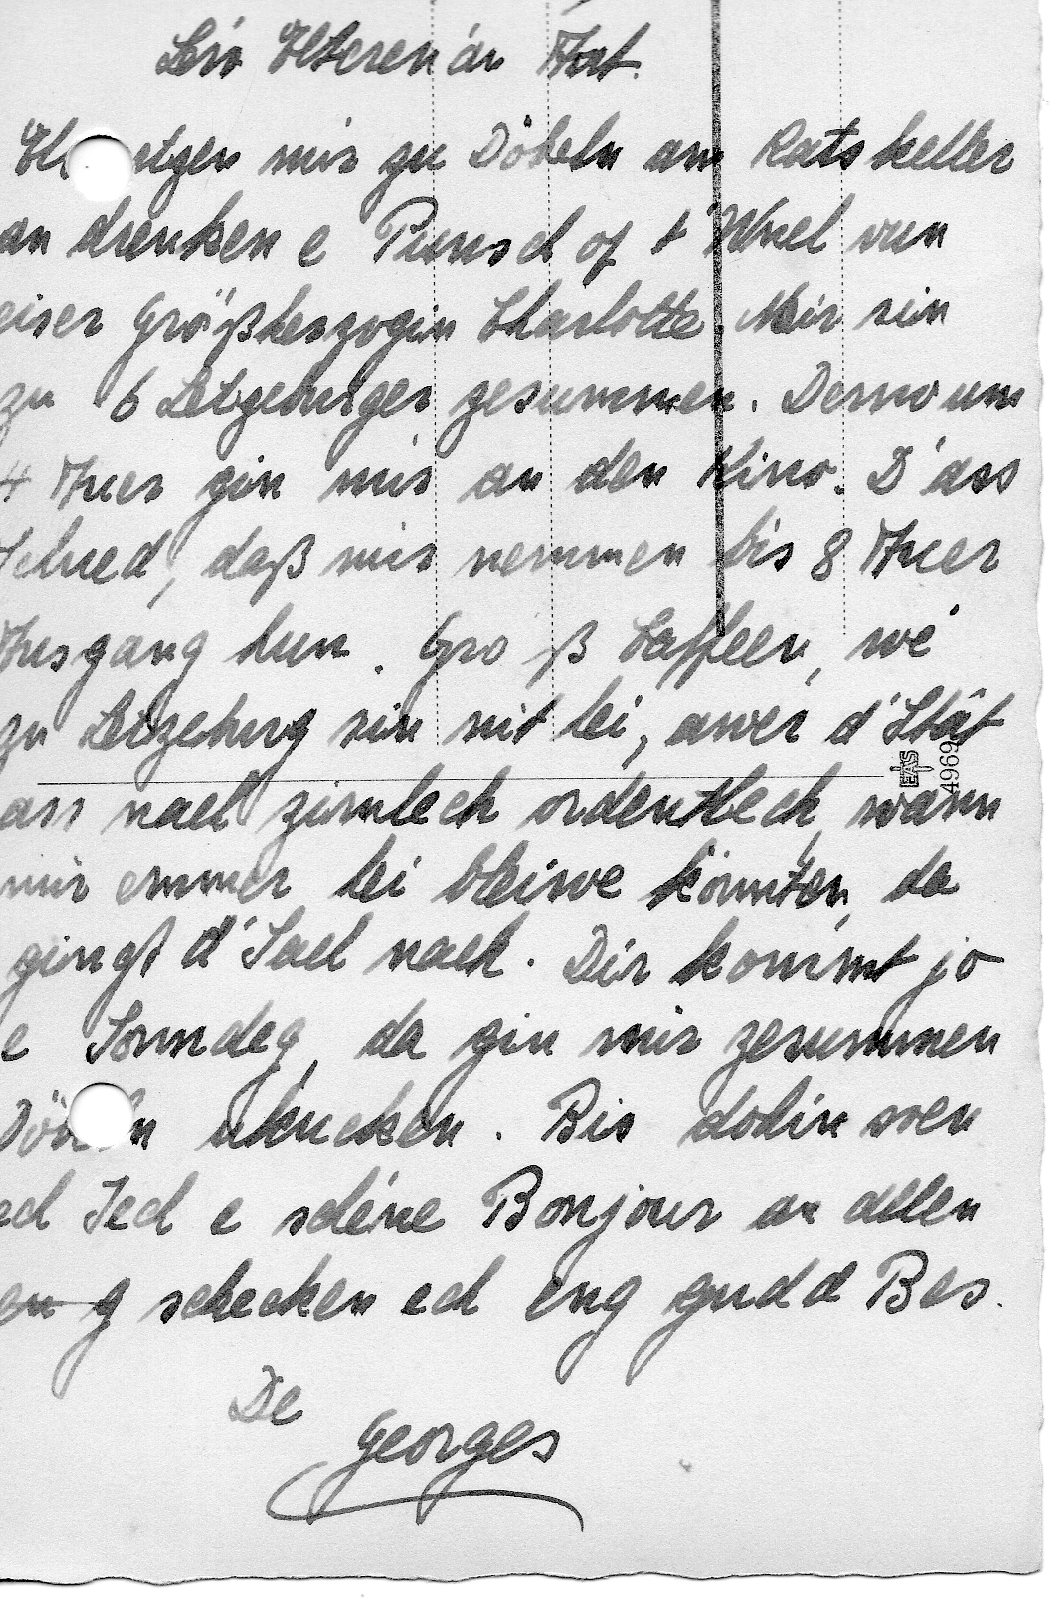 Léiv Elteren an Awt.
zu Döbeln am Ratskeller
an drenken e Punsch of t'Wuel vun
eiser Größherzogin Charlotte. Mir sin
zu 6 Letzeburger zesummen. Derno um
4 Auer gin mir an den Kino. D'ass
Schued, daß mir nemmen bis 8 Auer
Ausgang hun. Gro ß Saffeen, wé
zu Letzeburg sin nit hei, awer d'Stât
ass nach zimlech ordentlech, wann
mir emmer hei bleiwe könnten, da
gingt d'Sach nach. Dir kommt jo
e Sonndeg, da gin mir zesummen
Döbeln ukucken. Bis dohin soen
ech Iech e schéine Bonjour an allen
en g schecken ech eng gudd Bes.
De
Georges
EAS
4969